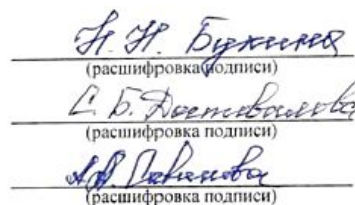 Н. Н. Букина
(расшифровка подписи)
С. Б. Достовалова
(расшифровка подписи)
(расшифровка подписи)